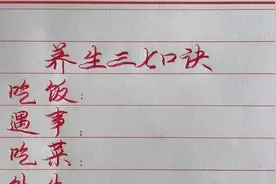 养生三七口诀
吃饭:
遇事:
吃菜: